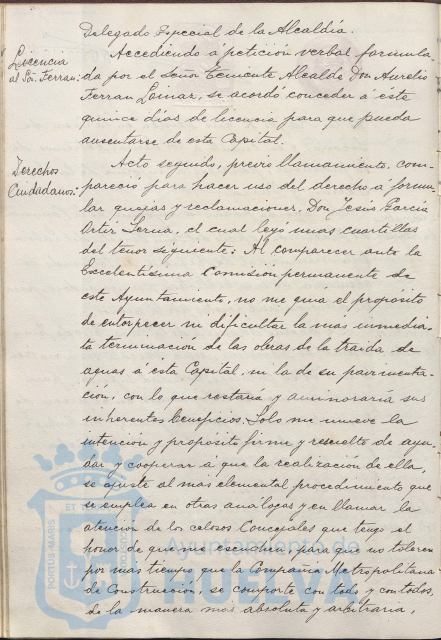 Delegado Especial de la Alcaldía.
Licencia
al Sr. Ferran:
Accediendo á petición verbal formula-
da por el Señor Teniente Alcalde Don Aurelio
Ferran Loinaz, se acordó conceder á éste
quince días de licencia para que pueda
ausentarse de esta Capital.
Derechos
Ciudadanos:
Acto seguido, previo llamamiento, com-
pareció para hacer uso del derecho á formu-
lar quejas y reclamaciones, Don Jesús García
Ortiz Serna, el cual leyó unas cuartillas
del tenor siguiente: Al comparecer ante la
Excelentísima Comisión permanente de
este Ayuntamiento, no me guía el propósito
de entorpecer ni dificultar la más inmedia-
ta terminación de las obras de la traida de
aguas á esta Capital, ni la de su pavimenta-
ción, con lo que restaria y aminoraría sus
inherentes beneficios. Solo me mueve la
intención y propósito firme y resuelto de ayu-
dar y cooperar á que la realización de ella,
se ajuste al más elemental procedimiento que
se emplea en otras análogas y en llamar la
atención de los celosos Concejales que tengo el
honor de que me escuchen, para que no toleren
por más tiempo que la Compañía Metropolitana
de Construcción, se comporte con todo y con todos,
de la manera más absoluta y arbitraria,
PORTUS MARIS
ET
Ayuntamiento de
HUELVA